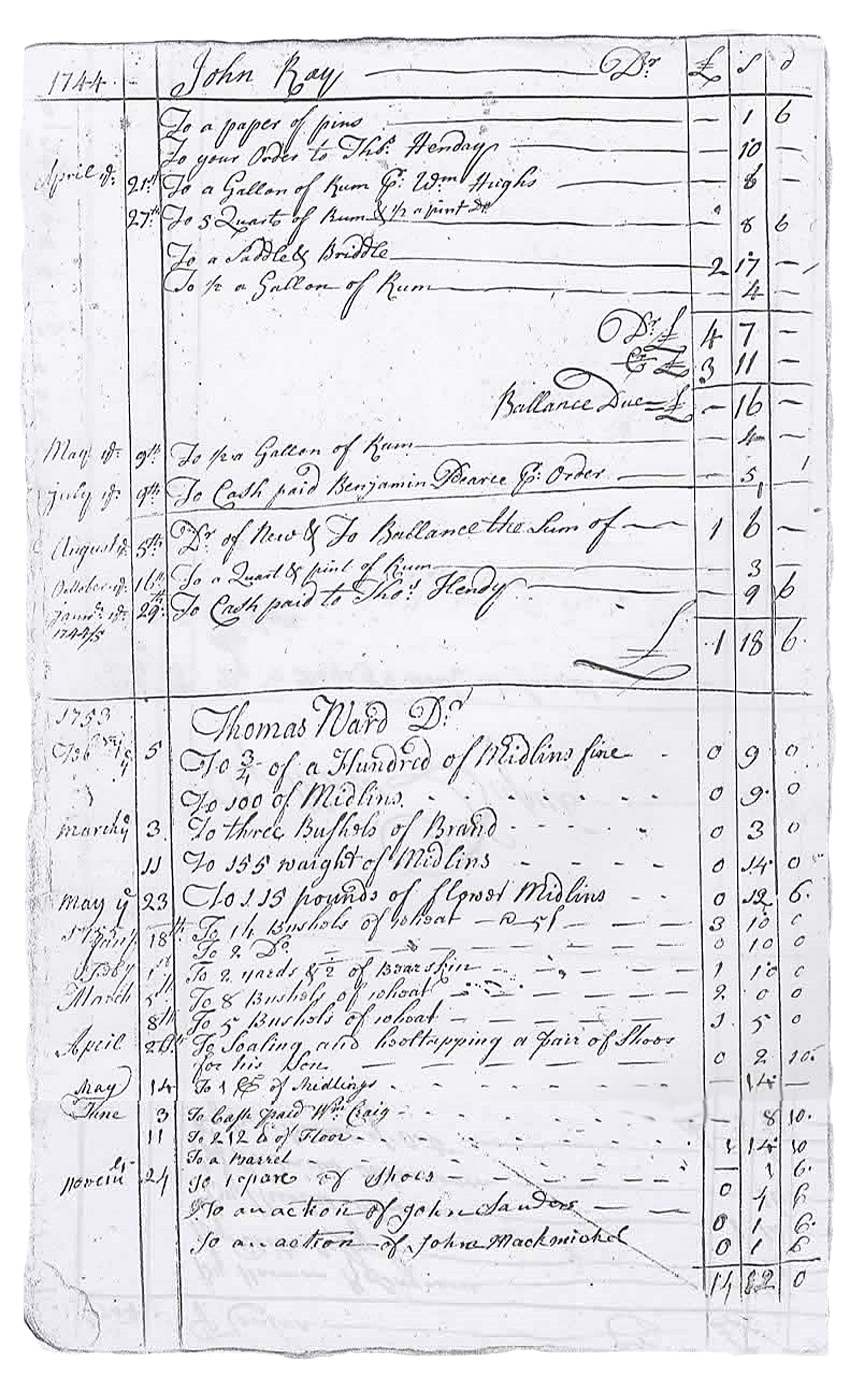 1744 John Ray Dr £ s d
To a paper of pins — 1 6
To your Order to Thos. Henday — 10 —
April ye 21st To a Gallon of Rum Pr. Wm Hughs — 8 —
27th To 5 Quarts of Rum & 1/2 a pint Do 8 6
To a Saddle & Briddle 2 17 —
To 1/2 a Gallon of Rum — 4 —
Dr £ 4 7 —
Cr £ 3 11 —
Ballance Due £ — 16 —
May ye 9th To 1/2 a Gallon of Rum — 4 —
July ye 9th To Cash paid Benjamin Pearce Pr. Order — 5 1
August ye 5th Dr of New & To Ballance the Sum of 1 6 —
October ye 16th To a Quart & pint of Rum 3 —
Janry ye 29th To Cash paid to Thos Hendy 9 6
1744/5
£ 1 18 6
1753 Thomas Ward Dr
5 To 3/4 of a Hundred of Midlins fine 0 9 0
To 100 of Midlins 0 9 0
March ye 3 To three Bushols of Brand 0 3 0
11 To 155 waight of Midlins 0 14 0
May ye 23 To 115 pounds of flower Midlins 0 12 6
1755 Jany 18th To 14 Bushols of whoat — @ 5s 3 10 0
To 2 Do 0 10 0
Feby 1st To 2 yards & 1/2 of Boarskin 1 10 0
March 5th To 8 Bushols of whoat 2 0 0
8th To 5 Bushols of whoat 1 5 0
April 26th To Soaling and hooltapping a pair of Shoos
for his Son 0 2 10
May 14 To 1 C of Midlings — 14 —
June 3 To Cash paid Wm Craig — 8 10
11 To 212 lb of Floor 1 14 10
To a Barrel — 1 6
24 To 1 pare of Shoos 0 4 6
To an action of John Sanders 0 1 6
To an action of John Mackmickel 0 1 6
14 0